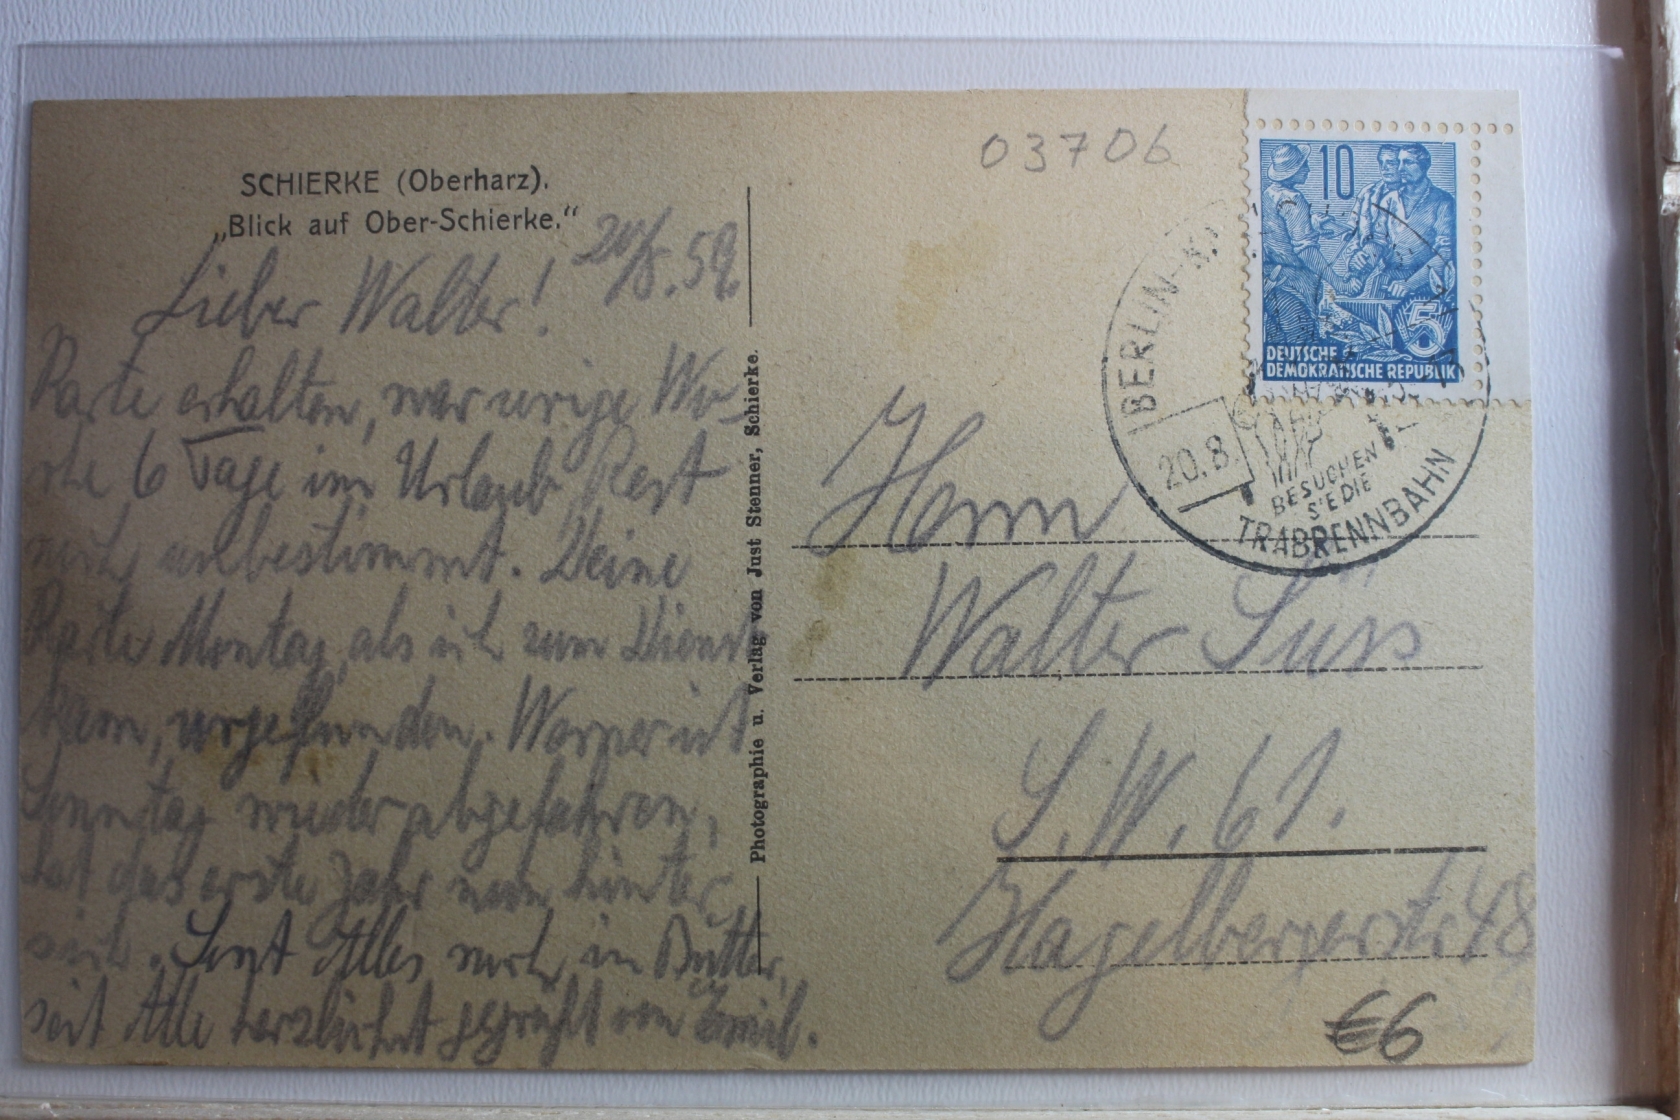 SCHIERKE (Oberharz).
„Blick auf Ober-Schierke.“
20/8.59.
Lieber Walter!
Karte erhalten, war vorige Wo-
che 6 Tage im Urlaub Rest
noch unbestimmt. Deine
Karte Montag, als ich zum Dienst
kam, vorgefunden. Werner ist
Sonntag wieder abgefahren,
hat das erste Jahr nun hinter
sich. Sonst Alles noch in Butter,
seit Alle herzlichst gegrüßt von Emil.
Photographie u. Verlag von Just Stenner, Schierke.
03706
10
5
DEUTSCHE
DEMOKRATISCHE REPUBLIK
BERLIN-
20.8.
BESUCHEN
SIE DIE
TRABRENNBAHN
Herrn
Walter Süss
S.W. 61.
Hagelbergerstr 48
€6